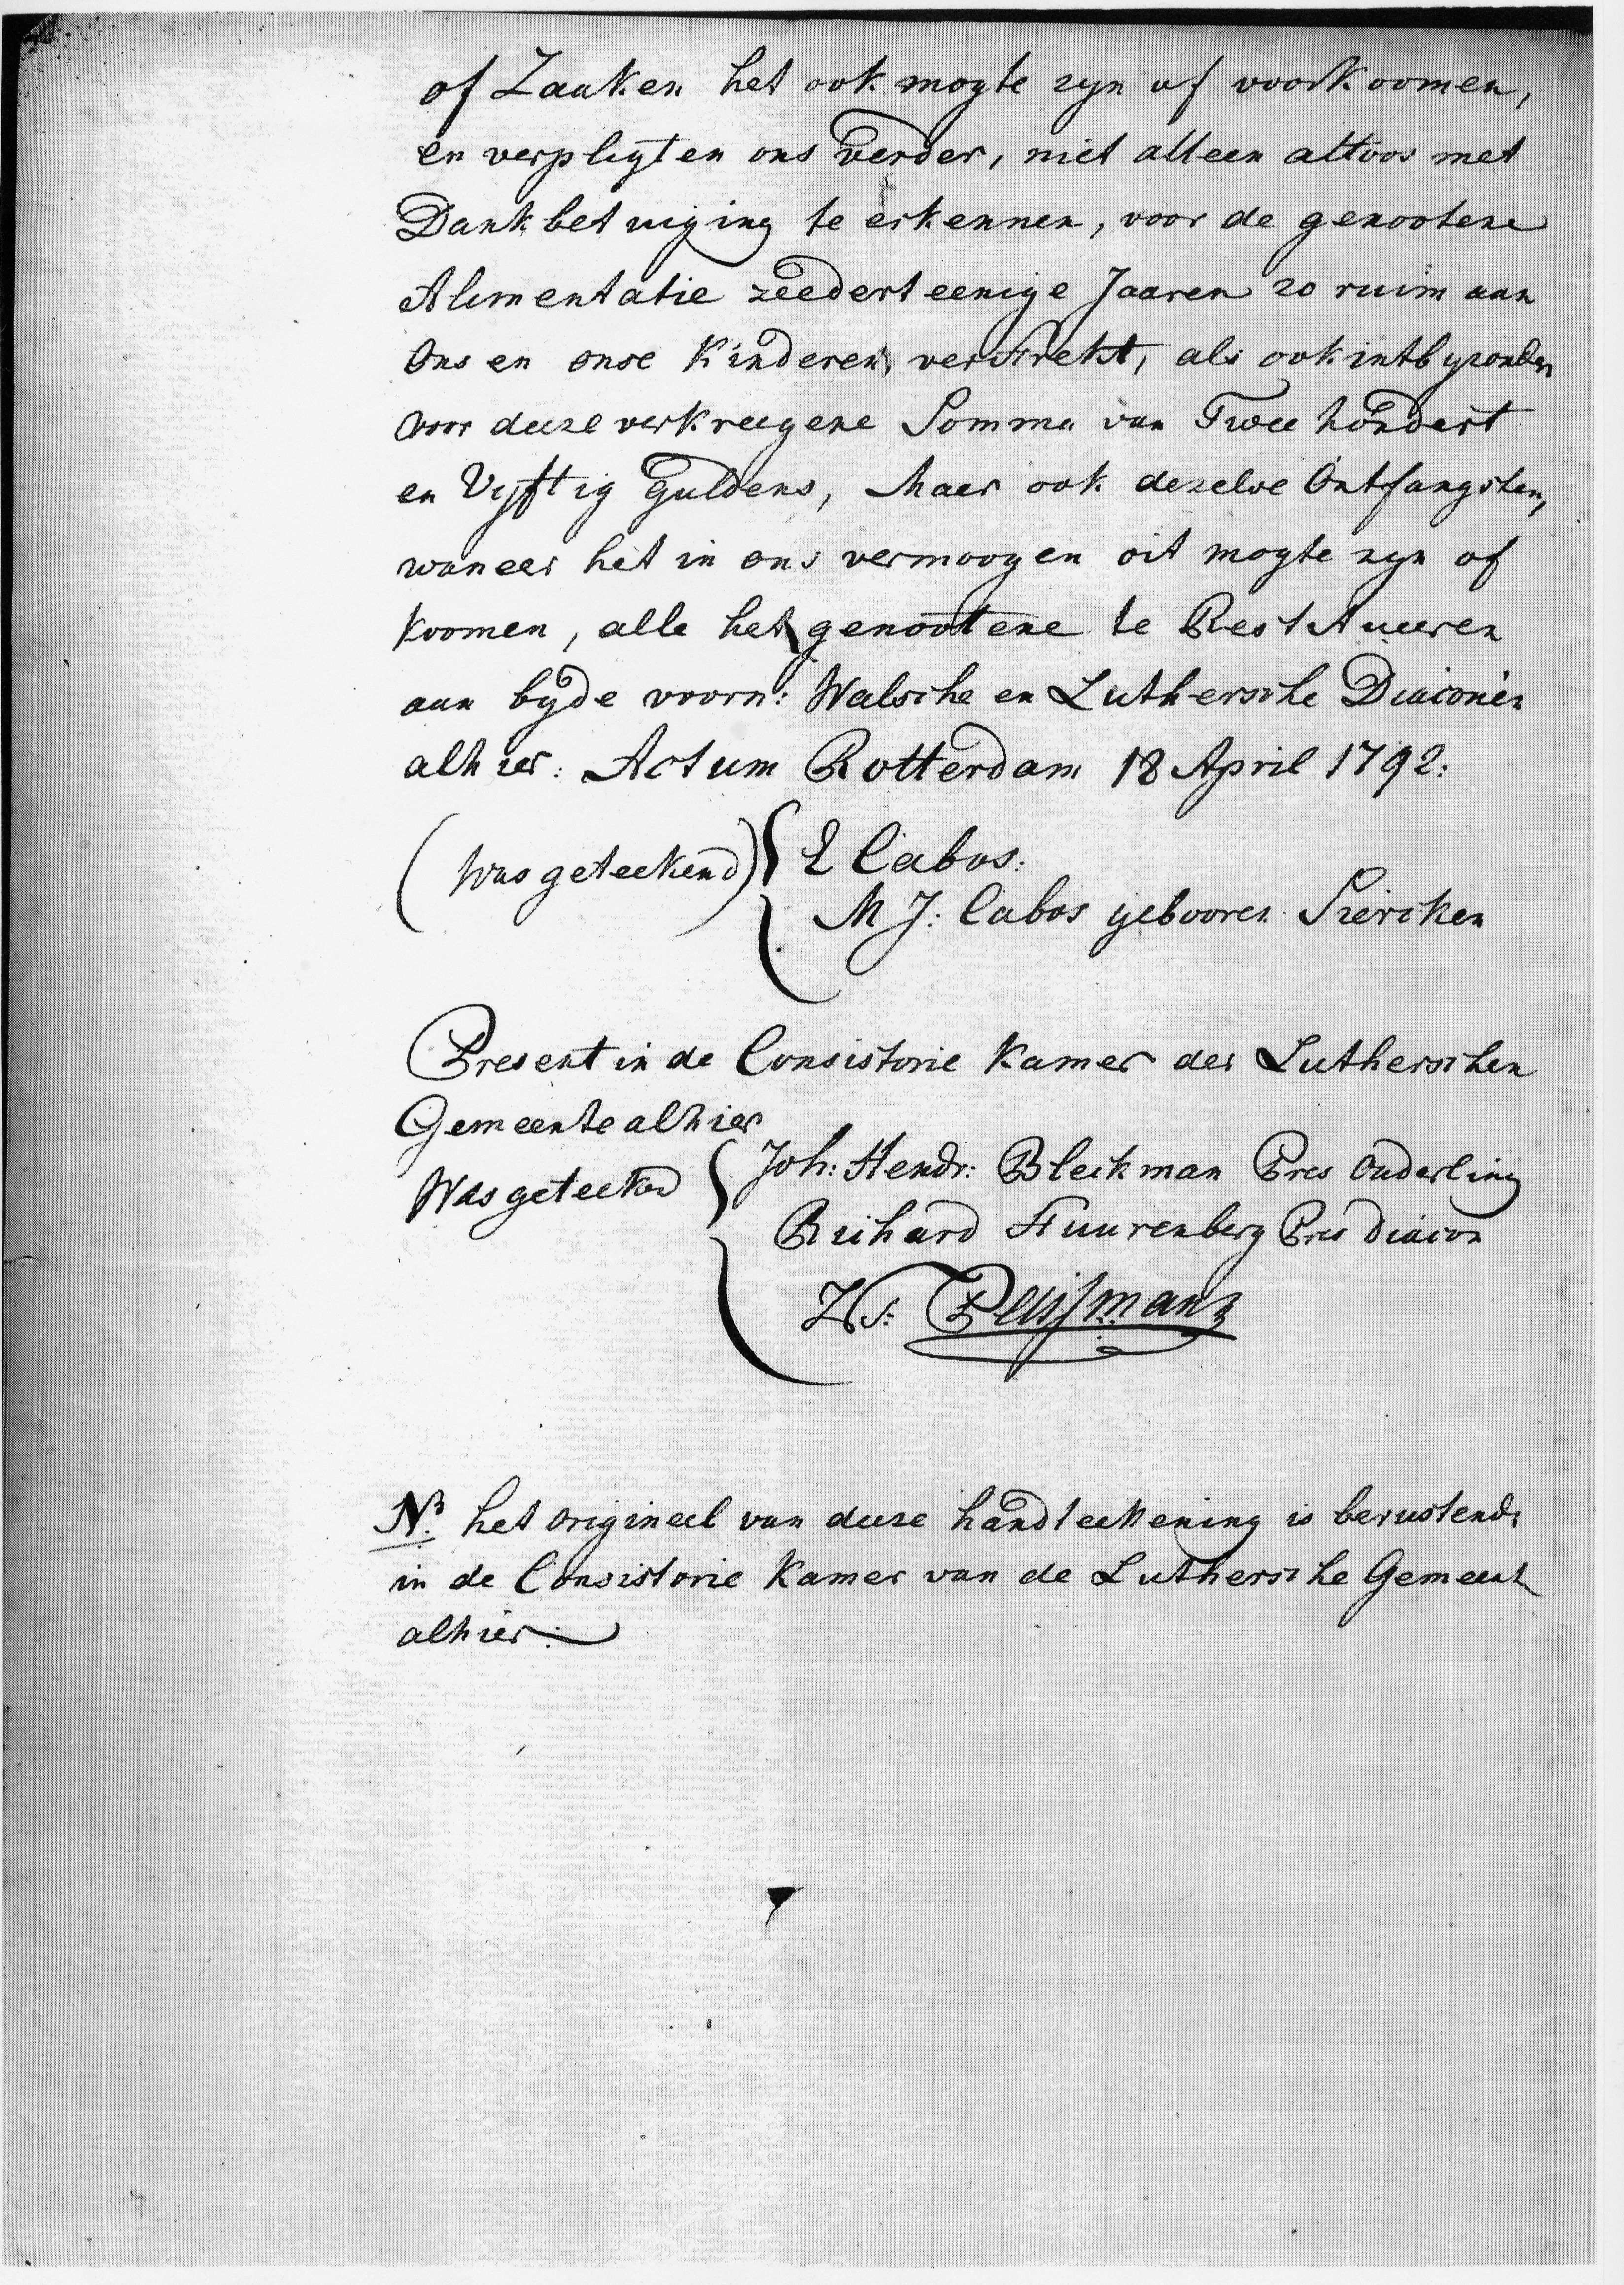 of Zaaken het ook mogte zyn of voorkoomen,
en verpligten ons verder, niet alleen altoos met
Dankbetuiging te erkennen, voor de genootene
Alimentatie zeedert eenige Jaaren zo ruim aan
Ons en onse Kinderen verstrekt, als ook int byzonder
voor deeze verkreegene Somma van Twee hondert
en Vyftig Guldens, Maer ook dezelve Ontfangsten,
waneer het in ons vermoogen oit mogte zyn of
koomen, alle het genootene te Restitueeren
aan byde voorn: Walsche en Luthersche Diaconien
alhier: Actum Rotterdam 18 April 1792:
(Was geteekend) E Cabos:
M J: Cabos gebooren Siercken
Present in de Consistorie Kamer der Lutherschen
Gemeente alhier
Was geteekend Joh: Hendr: Bleckman Pres Ouderling
Richard Stuurenberg Pres Diacon
Ws: Pluijmanz
NB het origineel van deeze handteekening is berustende
in de Consistorie Kamer van de Luthersche Gemeente
alhier: